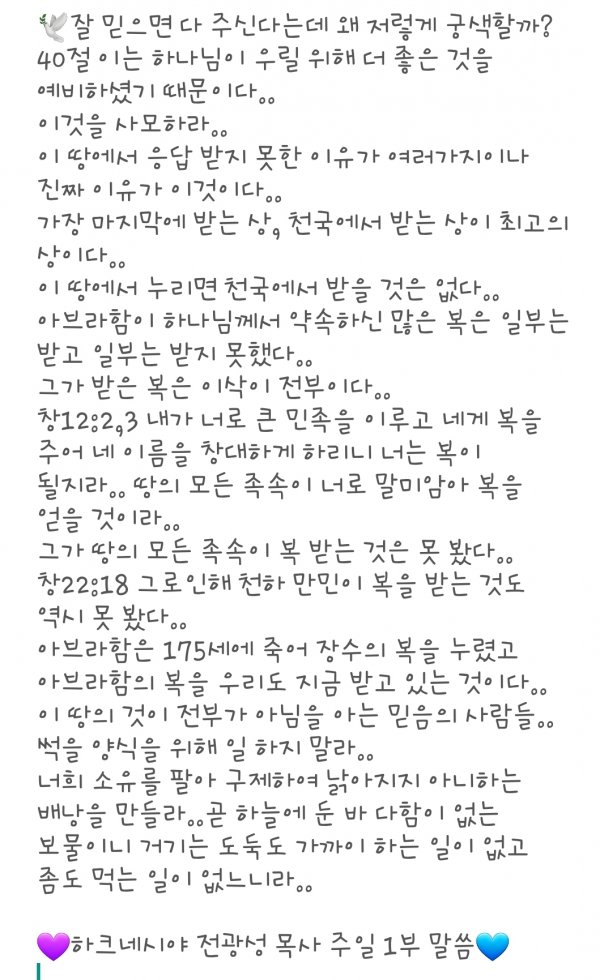 🕊잘 믿으면 다 주신다는데 왜 저렇게 궁색할까?
40절 이는 하나님이 우릴 위해 더 좋은 것을
예비하셨기 때문이다..
이것을 사모하라..
이 땅에서 응답 받지 못한 이유가 여러가지이나
진짜 이유가 이것이다..
가장 마지막에 받는 상, 천국에서 받는 상이 최고의
상이다..
이 땅에서 누리면 천국에서 받을 것은 없다..
아브라함이 하나님께서 약속하신 많은 복은 일부는
받고 일부는 받지 못했다..
그가 받은 복은 이삭이 전부이다..
창12:2,3 내가 너로 큰 민족을 이루고 네게 복을
주어 네 이름을 창대하게 하리니 너는 복이
될지라.. 땅의 모든 족속이 너로 말미암아 복을
얻을 것이라..
그가 땅의 모든 족속이 복 받는 것은 못 봤다..
창22:18 그로인해 천하 만민이 복을 받는 것도
역시 못 봤다..
아브라함은 175세에 죽어 장수의 복을 누렸고
아브라함의 복을 우리도 지금 받고 있는 것이다..
이 땅의 것이 전부가 아님을 아는 믿음의 사람들..
썩을 양식을 위해 일 하지 말라..
너희 소유를 팔아 구제하여 낡아지지 아니하는
배낭을 만들라..곧 하늘에 둔 바 다함이 없는
보물이니 거기는 도둑도 가까이 하는 일이 없고
좀도 먹는 일이 없느니라..
💜하크네시야 전광성 목사 주일 1부 말씀💙